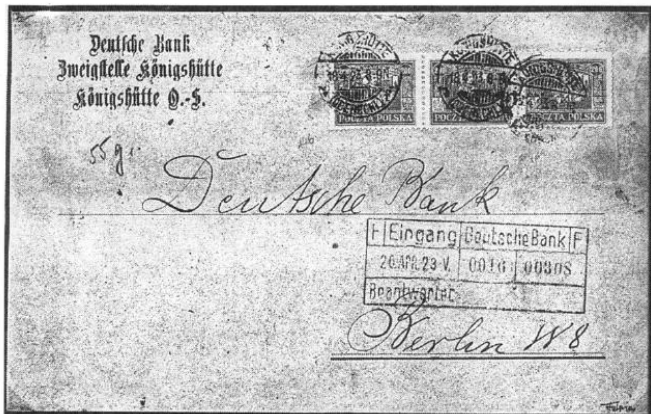 Deutsche Bank
Zweigstelle Königshütte
Königshütte O.-S.
KÖNIGSHÜTTE
18.4.23.8-9
KÖNIGSHÜTTE
18.4.23.8-
POCZTA POLSKA
POCZTA POLSKA
POCZTA POLSKA
55 g.
Deutsche Bank
F Eingang Deutsche Bank F
20.APR.23-V. 0016 00808
Beantwortet:
Berlin W8